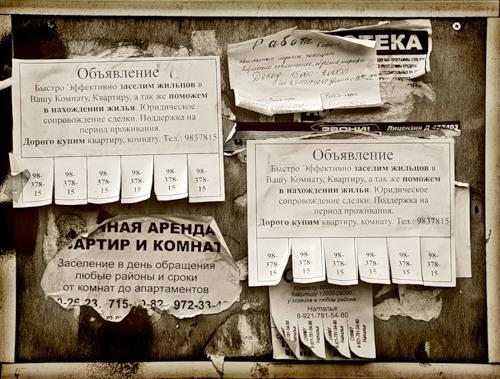 Объявление
Быстро Эффективно заселим жильцов в
Вашу Комнату, Квартиру, а так же поможем
в нахождении жилья. Юридическое
сопровождение сделки. Поддержка на
период проживания.
Дорого купим квартиру, комнату. Тел.: 9837815
98-378-15
98-378-15
98-378-15
98-378-15
98-378-15
98-378-15
Работа
Доход
ОТЕКА
ЗВОНИ!
Лицензия Д
Объявление
Быстро Эффективно заселим жильцов в
Вашу Комнату, Квартиру, а так же поможем
в нахождении жилья. Юридическое
сопровождение сделки. Поддержка на
период проживания.
Дорого купим квартиру, комнату. Тел.: 9837815
98-378-15
98-378-15
98-378-15
98-378-15
98-378-15
98-378-15
ЧНАЯ АРЕНДА
АРТИР И КОМНАТ
Заселение в день обращения
любые районы и сроки
от комнат до апартаментов
0-26-23, 715- 0-82 972-33-
Комнату
Квартиру
у хозяина в любом районе
Наталья
8-921-781-54-80